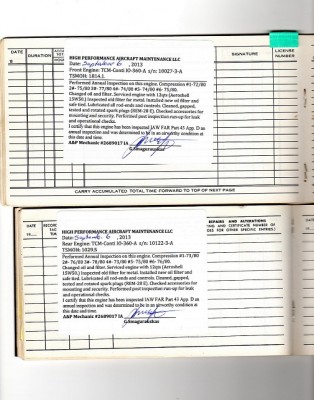 DATE
DURATION
SIGNATURE
LICENSE
NUMBER
HIGH PERFORMANCE AIRCRAFT MAINTENANCE LLC
Date: September 6, 2013
Front Engine: TCM-Cont IO-360-A s/n: 10027-3-A
TSMOH: 1014.1
Performed Annual Inspection on this engine. Compression #1-73/80
Changed oil and filter. Serviced engine with 12qts (Aeroshell
15W50.) Inspected old filter for metal. Installed new oil filter and
safe-tied. Lubricated all rod-ends and controls. Cleaned, gapped,
tested and rotated spark plugs (REM-28 E). Checked accessories for
mounting and security. Performed post inspection run-up for leak
and operational checks.
I certify that this engine has been inspected IAW FAR Part 43 App. D as
annual inspection and was determined to be in an airworthy condition at
this date and time.
A&P Mechanic #2609017 IA
CARRY ACCUMULATED TOTAL TIME FORWARD TO TOP OF NEXT PAGE
DATE
REPAIRS AND ALTERATIONS
HIGH PERFORMANCE AIRCRAFT MAINTENANCE LLC
Date: September 6, 2013
Rear Engine: TCM-Cont IO-360-A s/n: 10122-3-A
TSMOH: 1029.5
Performed Annual Inspection on this engine. Compression #1-73/80
Changed oil and filter. Serviced engine with 12qts (Aeroshell
15W50.) Inspected old filter for metal. Installed new oil filter and
safe-tied. Lubricated all rod-ends and controls. Cleaned, gapped,
tested and rotated spark plugs (REM-28 E). Checked accessories for
mounting and security. Performed post inspection run-up for leak
and operational checks.
I certify that this engine has been inspected IAW FAR Part 43 App. D as
annual inspection and was determined to be in an airworthy condition at
this date and time.
A&P Mechanic #2609017 IA